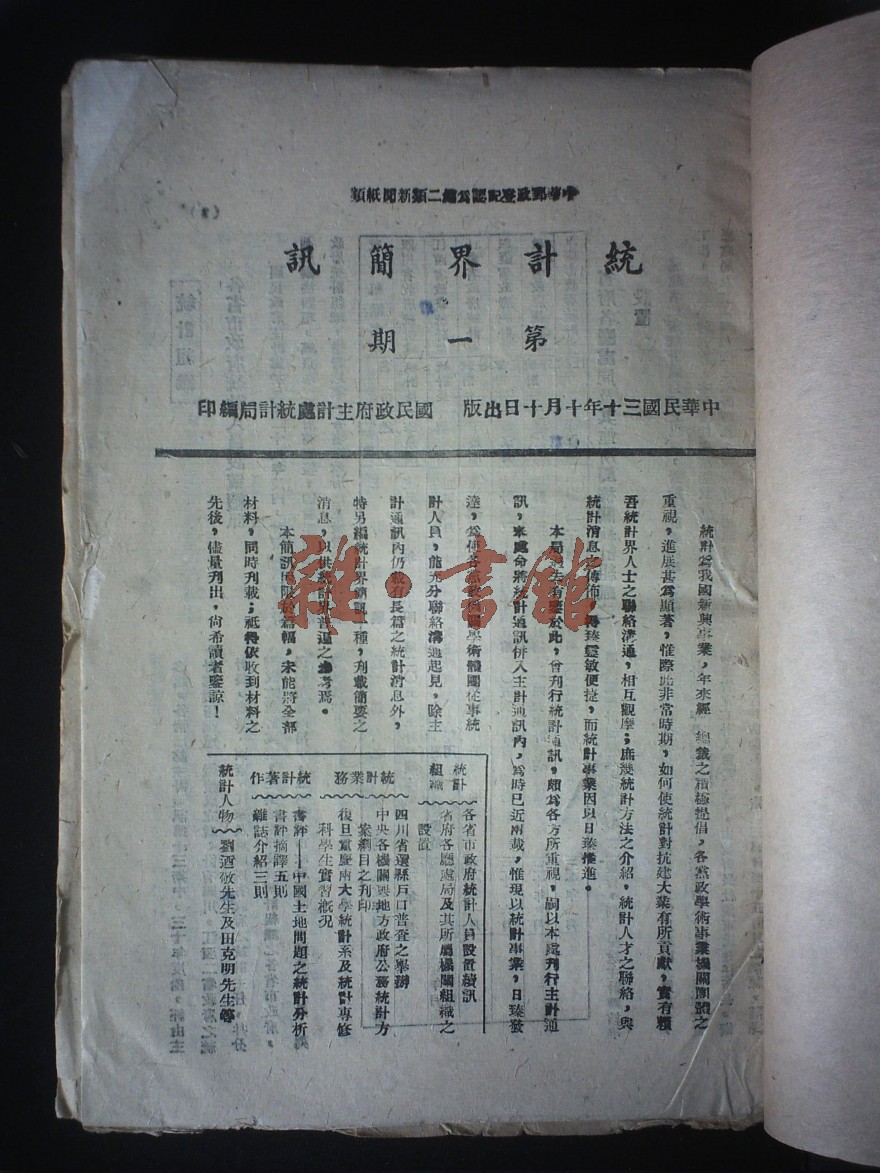 中華郵政登記認為第二類新聞紙類
統計界簡訊
第一期
中華民國三十年十月十日出版　國民政府主計處統計局編印
統計為我國新興事業，年來經　總裁之積極提倡，各黨政學術事業機關團體之
重視，進展甚為顯著，惟際此非常時期，如何使統計對抗建大業有所貢獻，實有賴
吾統計界人士之聯絡溝通，相互觀摩；庶幾統計方法之介紹，統計人才之聯絡，與
統計消息之傳佈，得臻靈敏便捷，而統計事業因以日臻推進。
本局前有鑒於此，曾刊行統計通訊，頗為各方所重視，嗣以本處刊行主計通
訊，奉處命將統計通訊併入主計通訊內，為時已近兩載，惟現以統計事業，日臻發
達，為使各黨政機關學術體團從事統
計人員，能充分聯絡溝通起見，除主
計通訊內仍載有長篇之統計消息外，
特另編統計界簡訊一種，刊載簡要之
消息，以供統計界普遍之參考焉。
本簡訊限於篇幅，未能將全部
材料，同時刊載；祇得依收到材料之
先後，儘量刊出，尚希讀者鑒諒！
統計組織
各省市政府統計人員設置續訊
省府各廳處局及其所屬機關組織之
設置
統計業務
四川省選縣戶口普查之舉辦
中央各機關與地方政府公務統計方
案綱目之刊印
復旦重慶兩大學統計系及統計專修
科學生實習概況
統計著作
書評——中國土地問題之統計分析
書評摘譯五則
雜誌介紹三則
統計人物
劉迺敬先生及田克明先生等
雜·書館